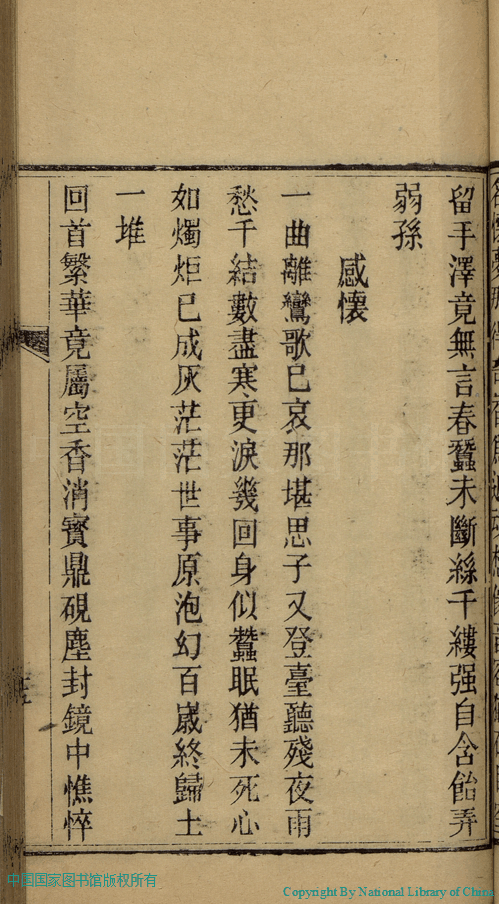 留手澤竟無言春蠶未斷絲千縷强自含飴弄
弱孫
感懷
一曲離鸞歌已哀那堪思子又登臺聽殘夜雨
愁千結數盡寒更淚幾回身似蠶眠猶未死心
如燭炬已成灰茫茫世事原泡幻百歲終歸土
一堆
回首繁華竟屬空香消寶鼎硯塵封鏡中憔悴
中国国家图书馆版权所有
Copyright By National Library of China